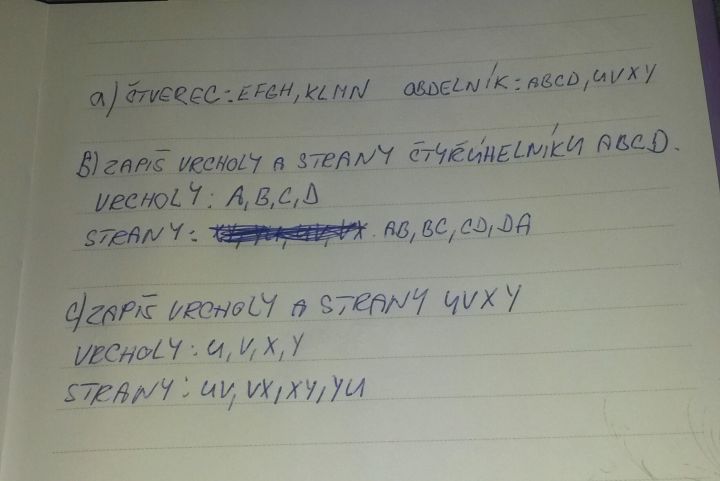 a) ČTVEREC: EFGH, KLMN OBDELNÍK: ABCD, UVXY
B) ZAPIŠ VRCHOLY A STRANY ČTYŘÚHELNÍKU ABCD.
VRCHOLY: A, B, C, D
STRANY: AB, BC, CD, DA
C) ZAPIŠ VRCHOLY A STRANY UVXY
VRCHOLY: U, V, X, Y
STRANY: UV, VX, XY, YU